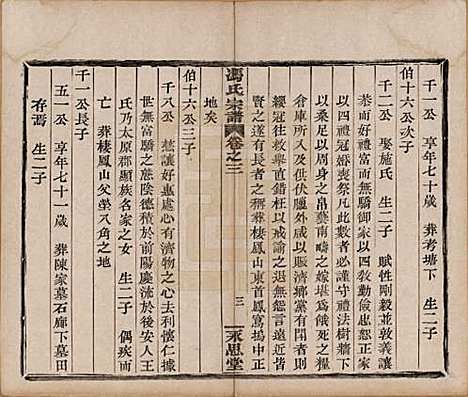 千一公 享年七十歲 葬考塘下 生二子
伯十六公次子
千二公 娶施氏 生二子 賦性剛毅並敦義讓
恭而好善富而無驕御家以四教勤儉思正家
以四禮冠婚喪祭凡此數者必謹守禮法樹牆下
以桑足以周身之帛藝南畝之嫁堪以為飽死之
倉庫所入及供伏臘外咸以賑濟鄉黨有閧則
纓冠往救舉直錯枉以戒諭之退無怨言遠近三
賢之遂有長者之稱葬棲鳳山東首鳳窩塲中正
地矣
馮氏宗譜 卷之三 三 永思堂
伯十六公三子
千八公 慈讓好惠處心有濟物之士利懷仁據
世世無窮之慈陰德積於前陽慶流於後安人王
氏乃太原郡顯族名家之女 生二子 偶疾而
亡 葬棲鳳山父塋八角之地
千一公長子
五一公 享年七十一歲 葬陳家墓石廊下墓田
存焉 生二子